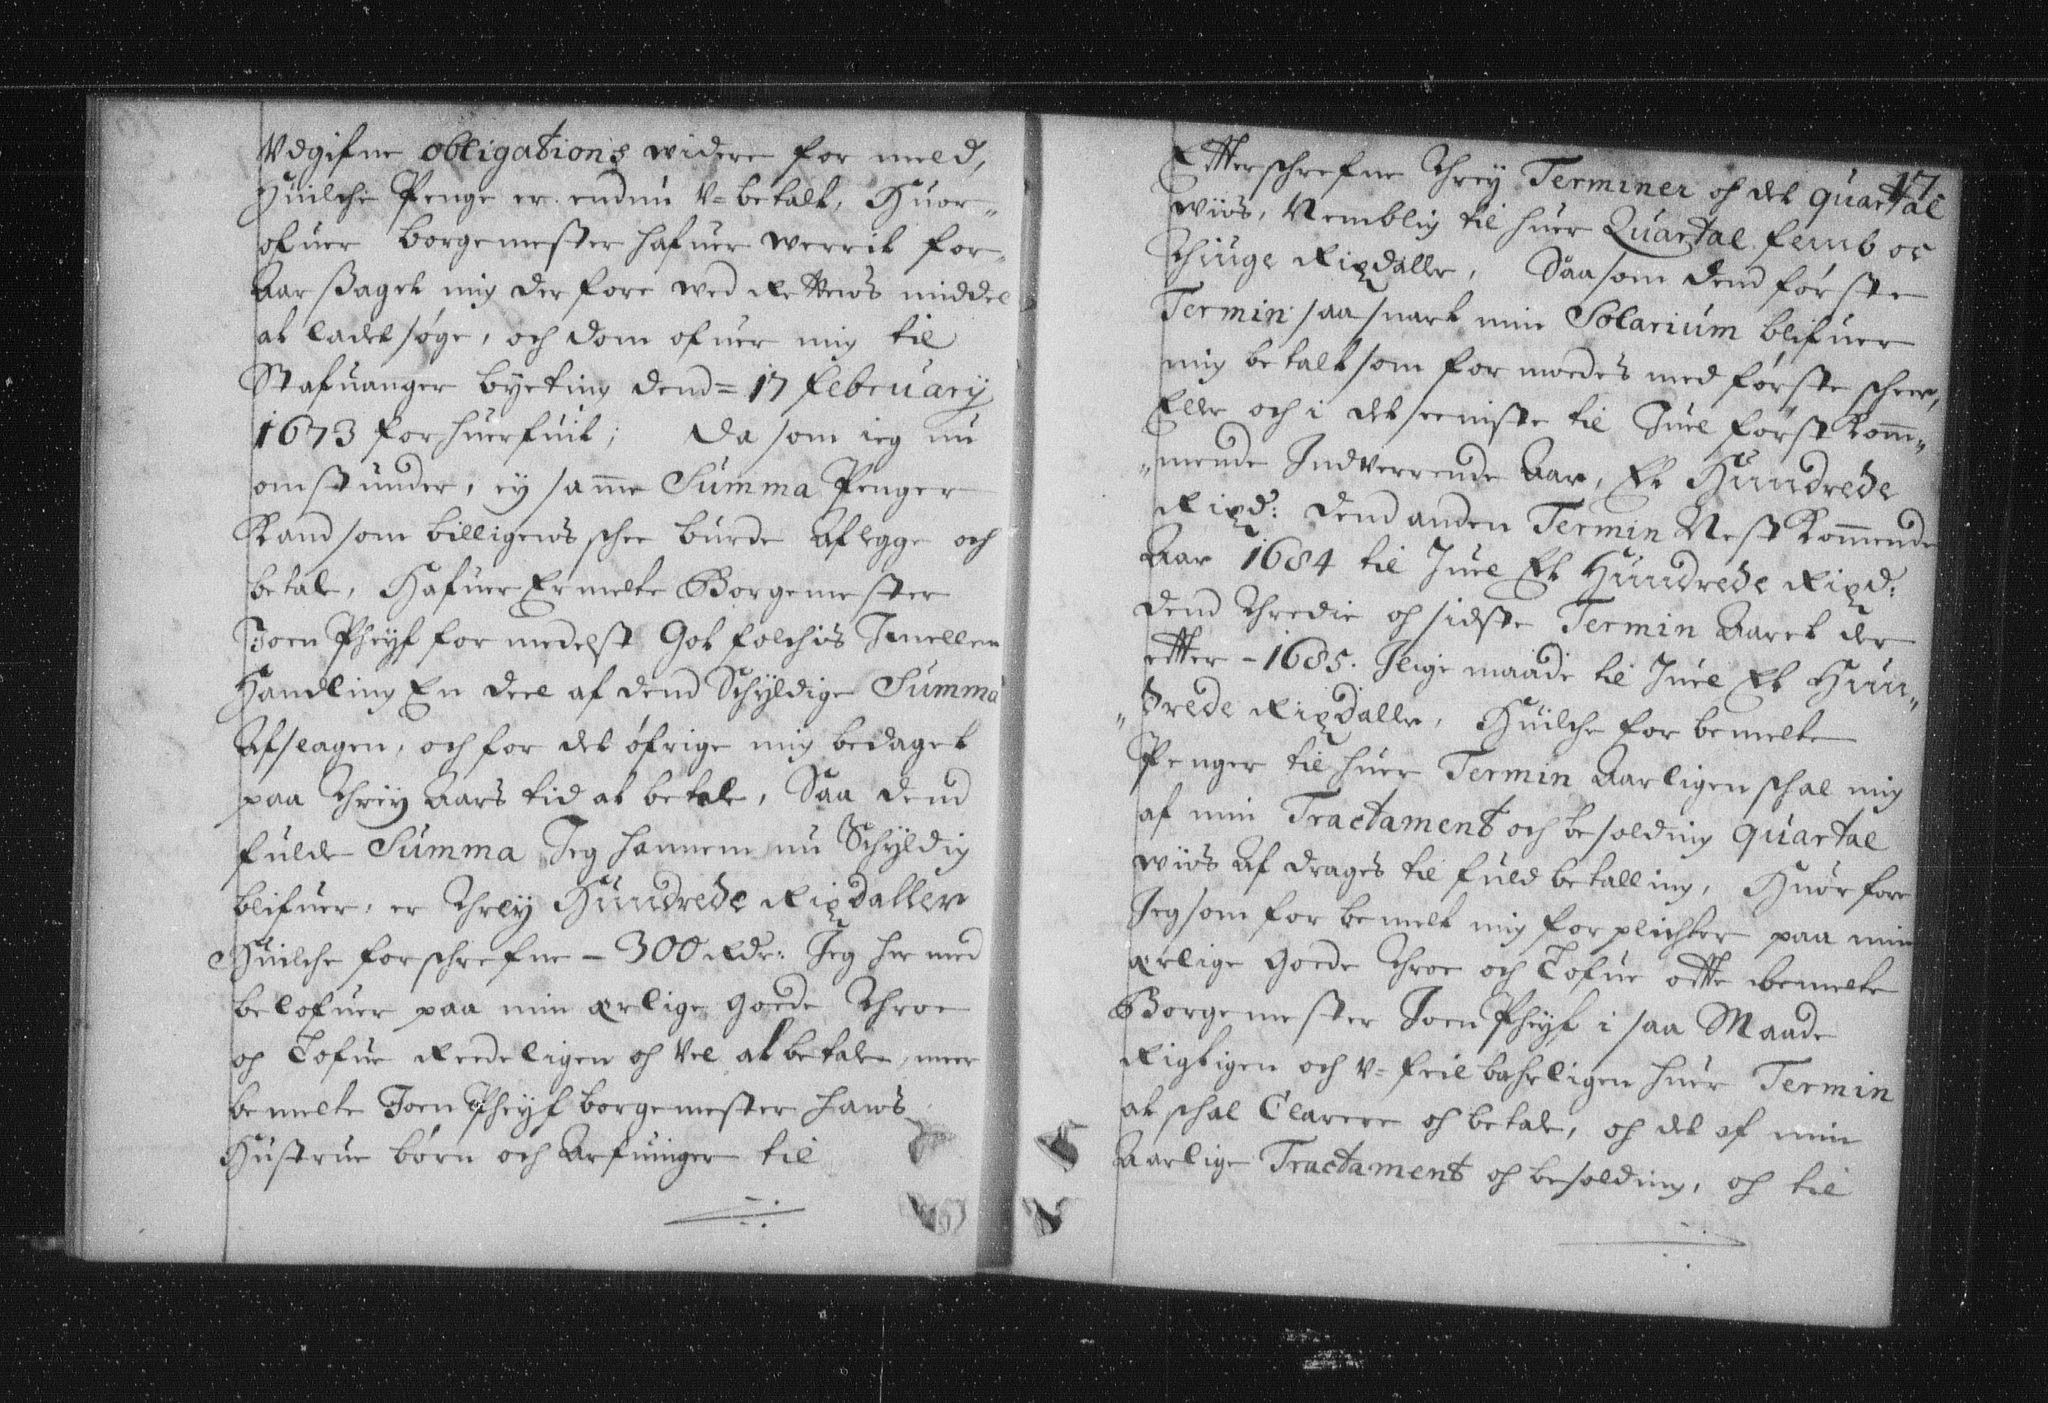 Vdgifne obligations widere formeld,
Huilche Penge er endnu V=betalt, Huor-
ofuer borgemester hafuer werrit for-
Aarßaget mig derfore wed Rettens middel
at ladet søge, och dom ofuer mig til
Stafuanger byeting dend = 17 february
1673 forhuerfuit; Da som ieg nu
omstunder, ey samme Summa Penger
Kand som billigens schee burde aflegge och
betale, Hafuer Ermelte Borgemester
Joen Pheyf formedelst Got folchis Imellem
Handling En deel af dend Schyldige Summa
Afslagen, och for det øfrige mig bedaget
paa Threy Aars tid at betale, Saa dend
fulde Summa Jeg hannem nu Schyldig
blifuer, er Threy Hundrede Rixdaller
Huilche forschrefne - 300 Rdr: Jeg hermed
belofuer paa min ærlige goede Throe
oh Lofue Reedeligen oh Vel at betale, meer
bemelte Joen Pheyf borgemester hans
Hustrue børn och Arfuinger til
17
Efterschrefne Threy Terminer oh det quartal
wiis, Nemblig til huer Quartal femb oc
Thiuge Rixdaller, Saasom dend første
Termin saa snart min Solarium blifuer
mig betalt som formoedes med første scheer,
Eller och i det seeniste til Juel først Komm-
mende Indverrende Aar, Et Hundrede
Rixd: dend anden Termin Nest Kommende
Aar 1684 til Juel Et Hundrede Rixd:
dend Thredie oh sidste Termin Aaret der
etter - 1685. Jlige maade til Juel Et Hun-
drede Rixdaller, Huilche forbemelte
Penger til huer Termin Aarligen schal mig
af min Tractament och besolding quartal
wiis Afdrages til fuld betalling, Huorfore
Jeg som forbemelt mig forplichter paa min
ærlige goede Throe och Lofue ofte bemelte
Borgemester Joen Pheyf i saa Maade
Rigtigen och V=feilbahrligen huer Termin
at schal Clarere oh betale, oh det af min
Aarlige Tractament oh besolding, oh til